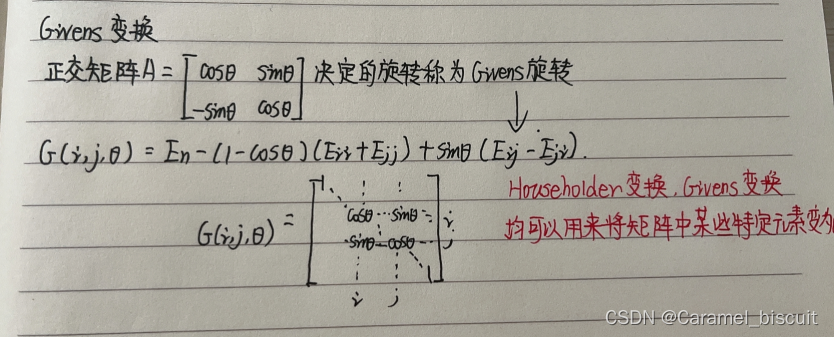 Givens 变换
正交矩阵A = [cosθ sinθ 决定的旋转称为Givens旋转
-sinθ cosθ]
G(i,j,θ) = En-(1-cosθ)(Eii+Ejj)+sinθ(Eij-Eji).
G(i,j,θ) = [1
cosθ … sinθ i
-sinθ - cosθ … j
1]
i j
Householder变换,Givens变换
均可以用来将矩阵中某些特定元素变为
CSDN @Caramel_biscuit